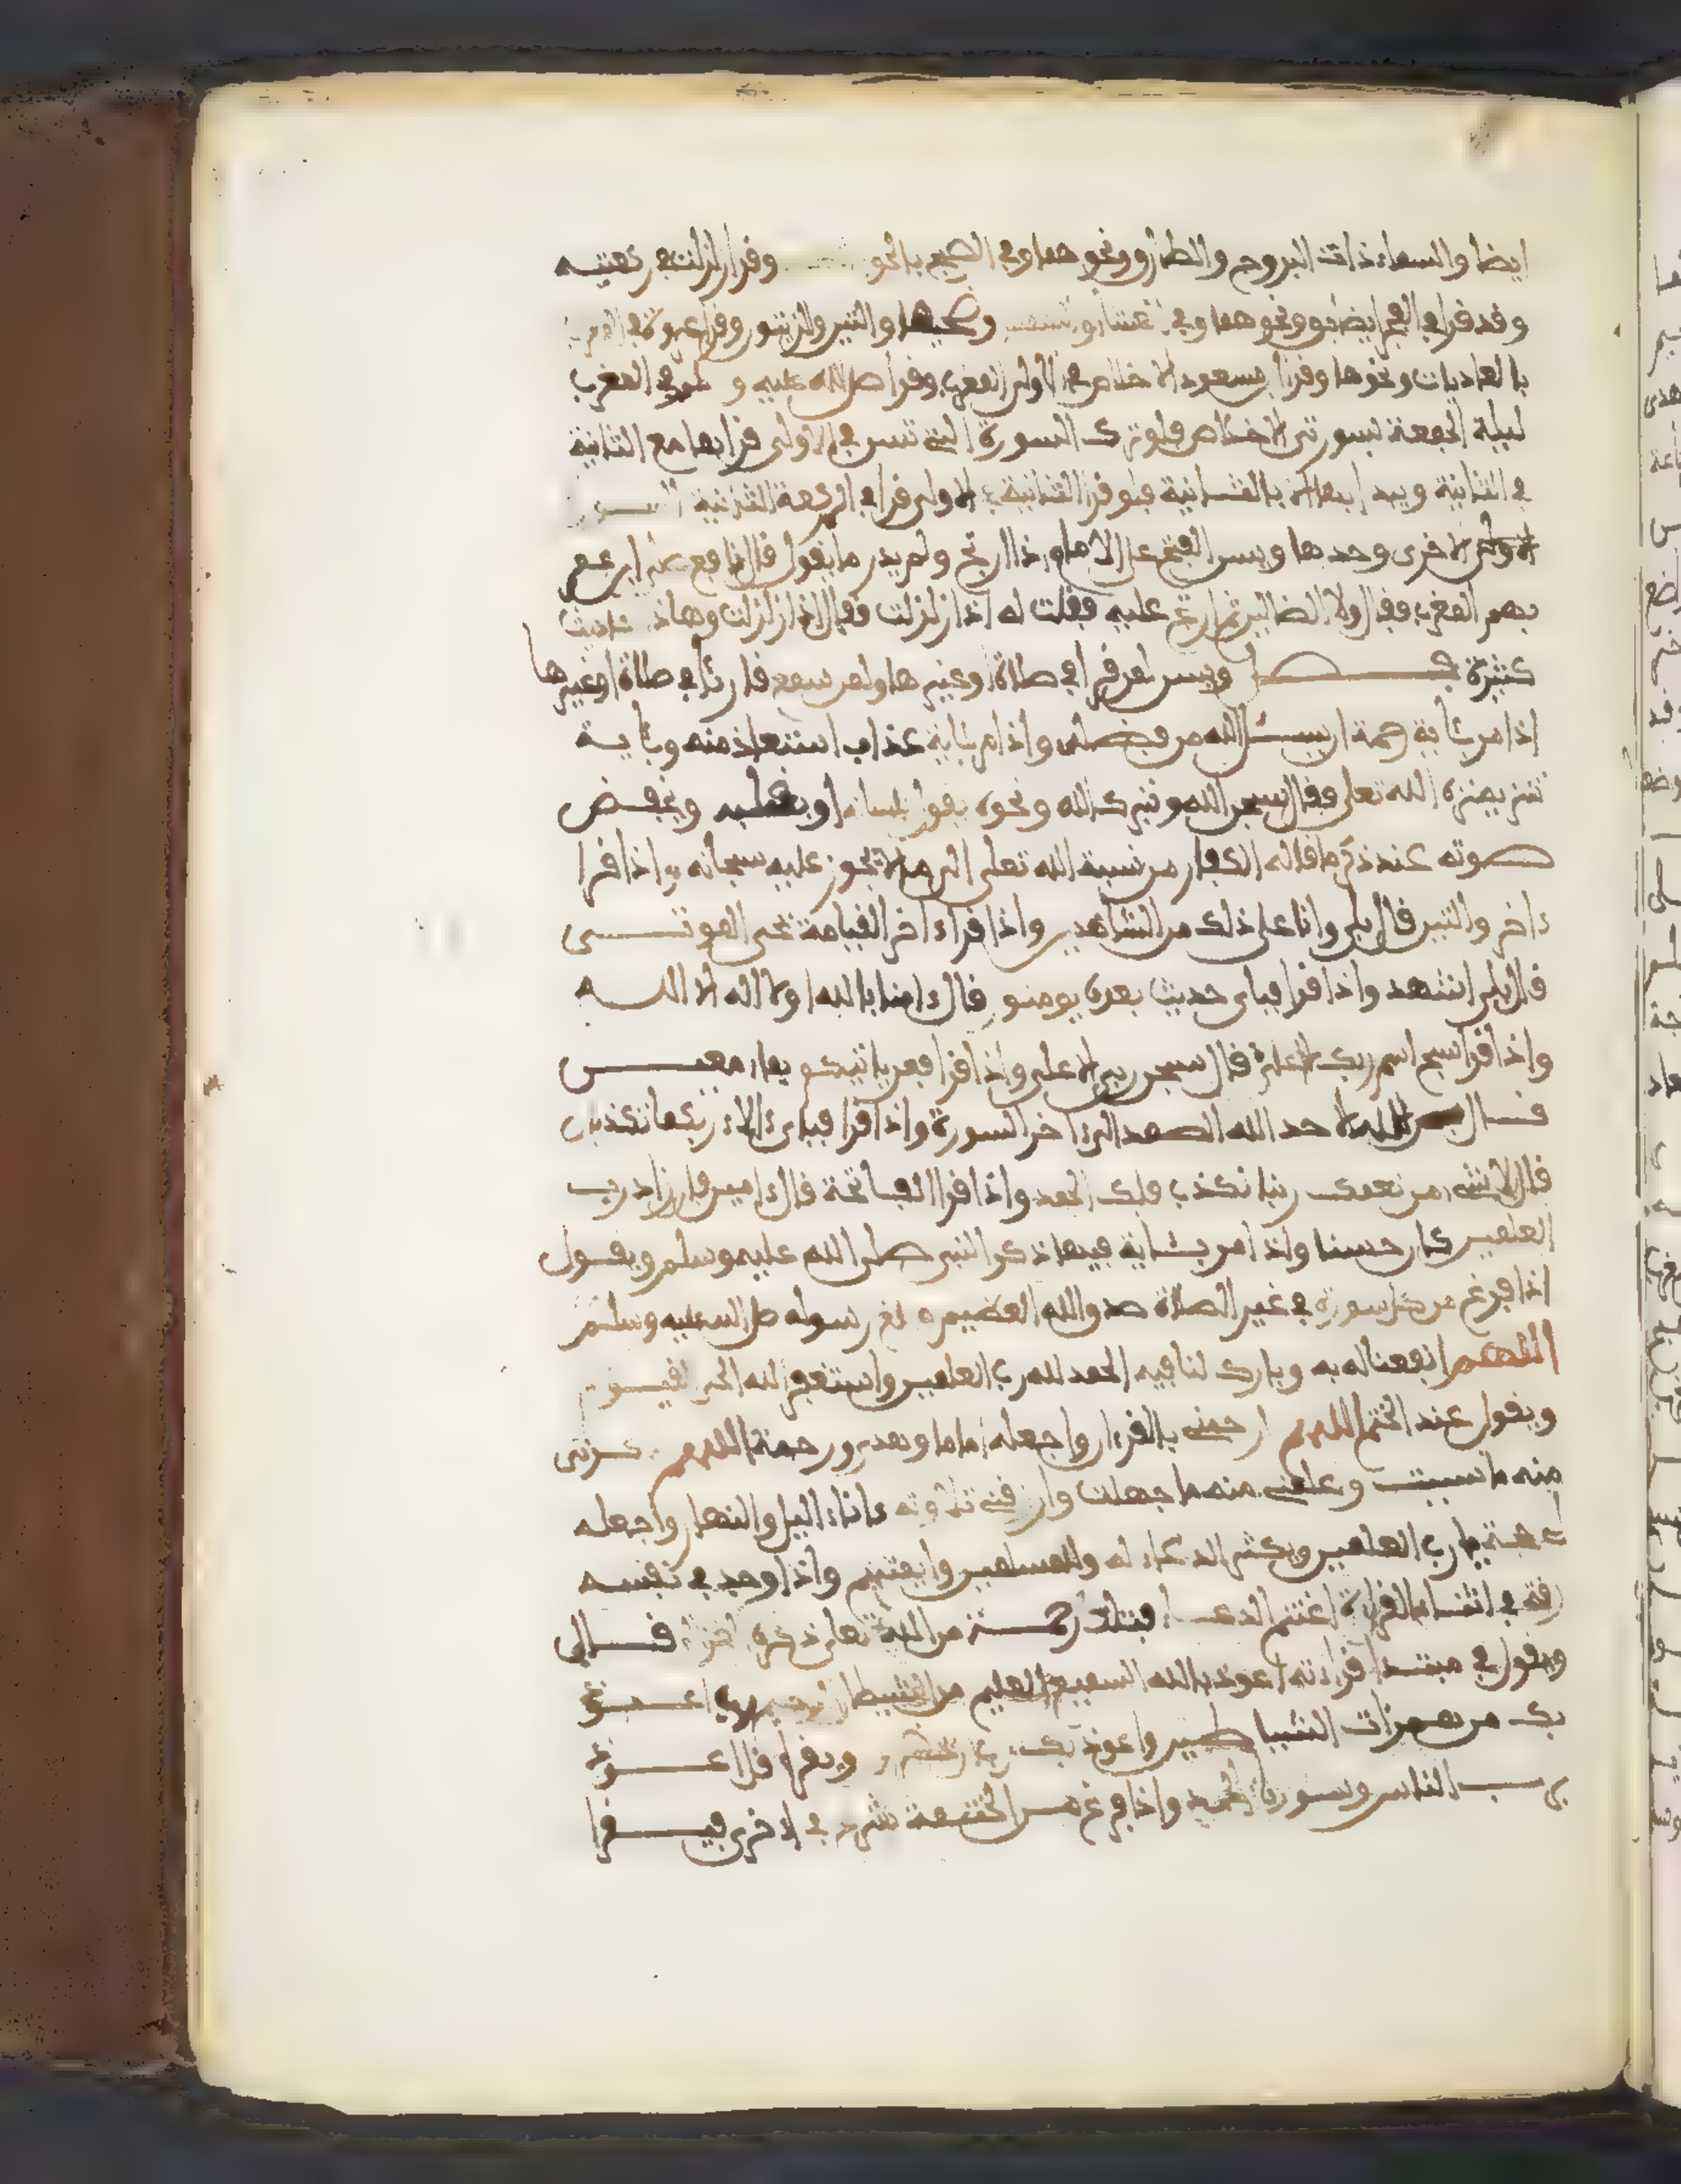 ايضا والسماء ذات البروج والطارق ونحوهما وفي الصبح بالنحو وقرا زلزلت في ركعتيه
وقد قرا في الفجر ايضا بق ونحوهما وفي العشا والشمس وضحيها والتين والزيتون وقرا عروة في
بالعاديات ونحوها وقرا ابن مسعود الاخلاص في الاولى المغرب وقرا صلى الله عليه وسلم في المغرب
ليلة الجمعة بسورتي الاخلاص فلو ترك السورة التي تسن في الاولى قرا بها مع الثانية
في الثانية ويبدا بها لا بالثانية فلو قرا الثانية في الاولى قرا في الركعة الثانية
الاخرى وحدها ويسن الفتح على الامام اذا ارتج ولم يدر ما يقول قال نافع صلى ابن عمر
بهم المغرب فقال ولا الضالين ثم ارتج عليه فقلت له اذا زلزلت فقال اذا زلزلت وهاذ
كثيرة ويسن لمن قرا في صلاة او غيرها ولمن سمع قارئا في صلاة او غيرها
اذا مر بئاية رحمة ان يسئل الله من فضله واذا مر بئاية عذاب استعاذ منه وبئاية
تنزيه نزه الله تعلى فقال سبحن الله وتبرك الله ونحوه يقول بلسانه او بقلبه ويخفض
صوته عند ذكر ما قاله الكفار من نسبة الله تعلى الى ما لا يجوز عليه سبحانه واذا قرا
ءاخر والتين قال بلى وانا على ذلك من الشاهدين واذا قرا ءاخر القيامة نحي الموتى
قال بلى اشهد واذا قرا فباي حديث بعده يومنون قال ءامنا بالله او لا اله الا الله
واذا قرا سبح اسم ربك الاعلى قال سبحن ربي الاعلى واذا قرا فمن ياتيكم بماء معين
قال الله الاحد الله الصمد الى ءاخر السورة واذا قرا فباي ءالاء ربكما تكذبان
قال لا بشيء من نعمك ربنا نكذب فلك الحمد واذا قرا الفاتحة قال ءامين فان زاد رب
العلمين كان حسنا واذا مر بئاية فيها ذكر النبي صلى الله عليه وسلم ويقول
اذا فرغ من كل سورة في غير الصلاة صدق الله العظيم وبلغ رسوله صلى الله عليه وسلم
اللهم انفعنا له به وبارك لنا فيه الحمد لله رب العلمين واستغفر الله الحي القيوم
ويقول عند الختم اللهم ارحمني بالقرءان واجعله اماما وهدى ورحمة اللهم ذكرني
منه ما نسيت وعلمني منه ما جهلت وارزقني تلاوته ءاناء اليل والنهار واجعله
لي حجة يا رب العلمين ويكثر الدعاء له وللمسلمين وايمتهم واذا وجد في نفسه
رقة في اثناء القراءة اغتنم الدعاء فتلك رحمة من الله تعلى ذكره قال
ويقول في مبتدا قراءته اعوذ بالله السميع العليم من الشيطان الرجيم رب اعوذ
بك من همزات الشياطين واعوذ بك رب ان يحضرون ويقرا قل اعوذ
برب الناس وسورة الحمد واذا فرغ من الختمة شرع في اخرى فيقرا